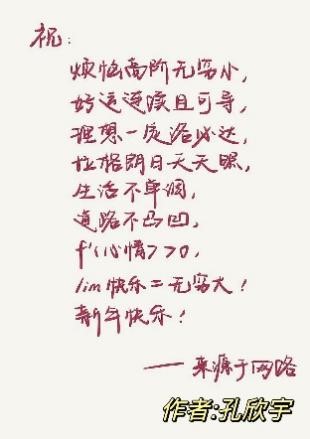 祝：
烦恼高阶无穷小，
好运连续且可导，
理想一定洛必达，
拉格朗日天天照，
生活不单调，
道路不凸凹，
f'(心情)>0，
lim快乐=无穷大！
新年快乐！
——来源于网络
作者:孔欣宇